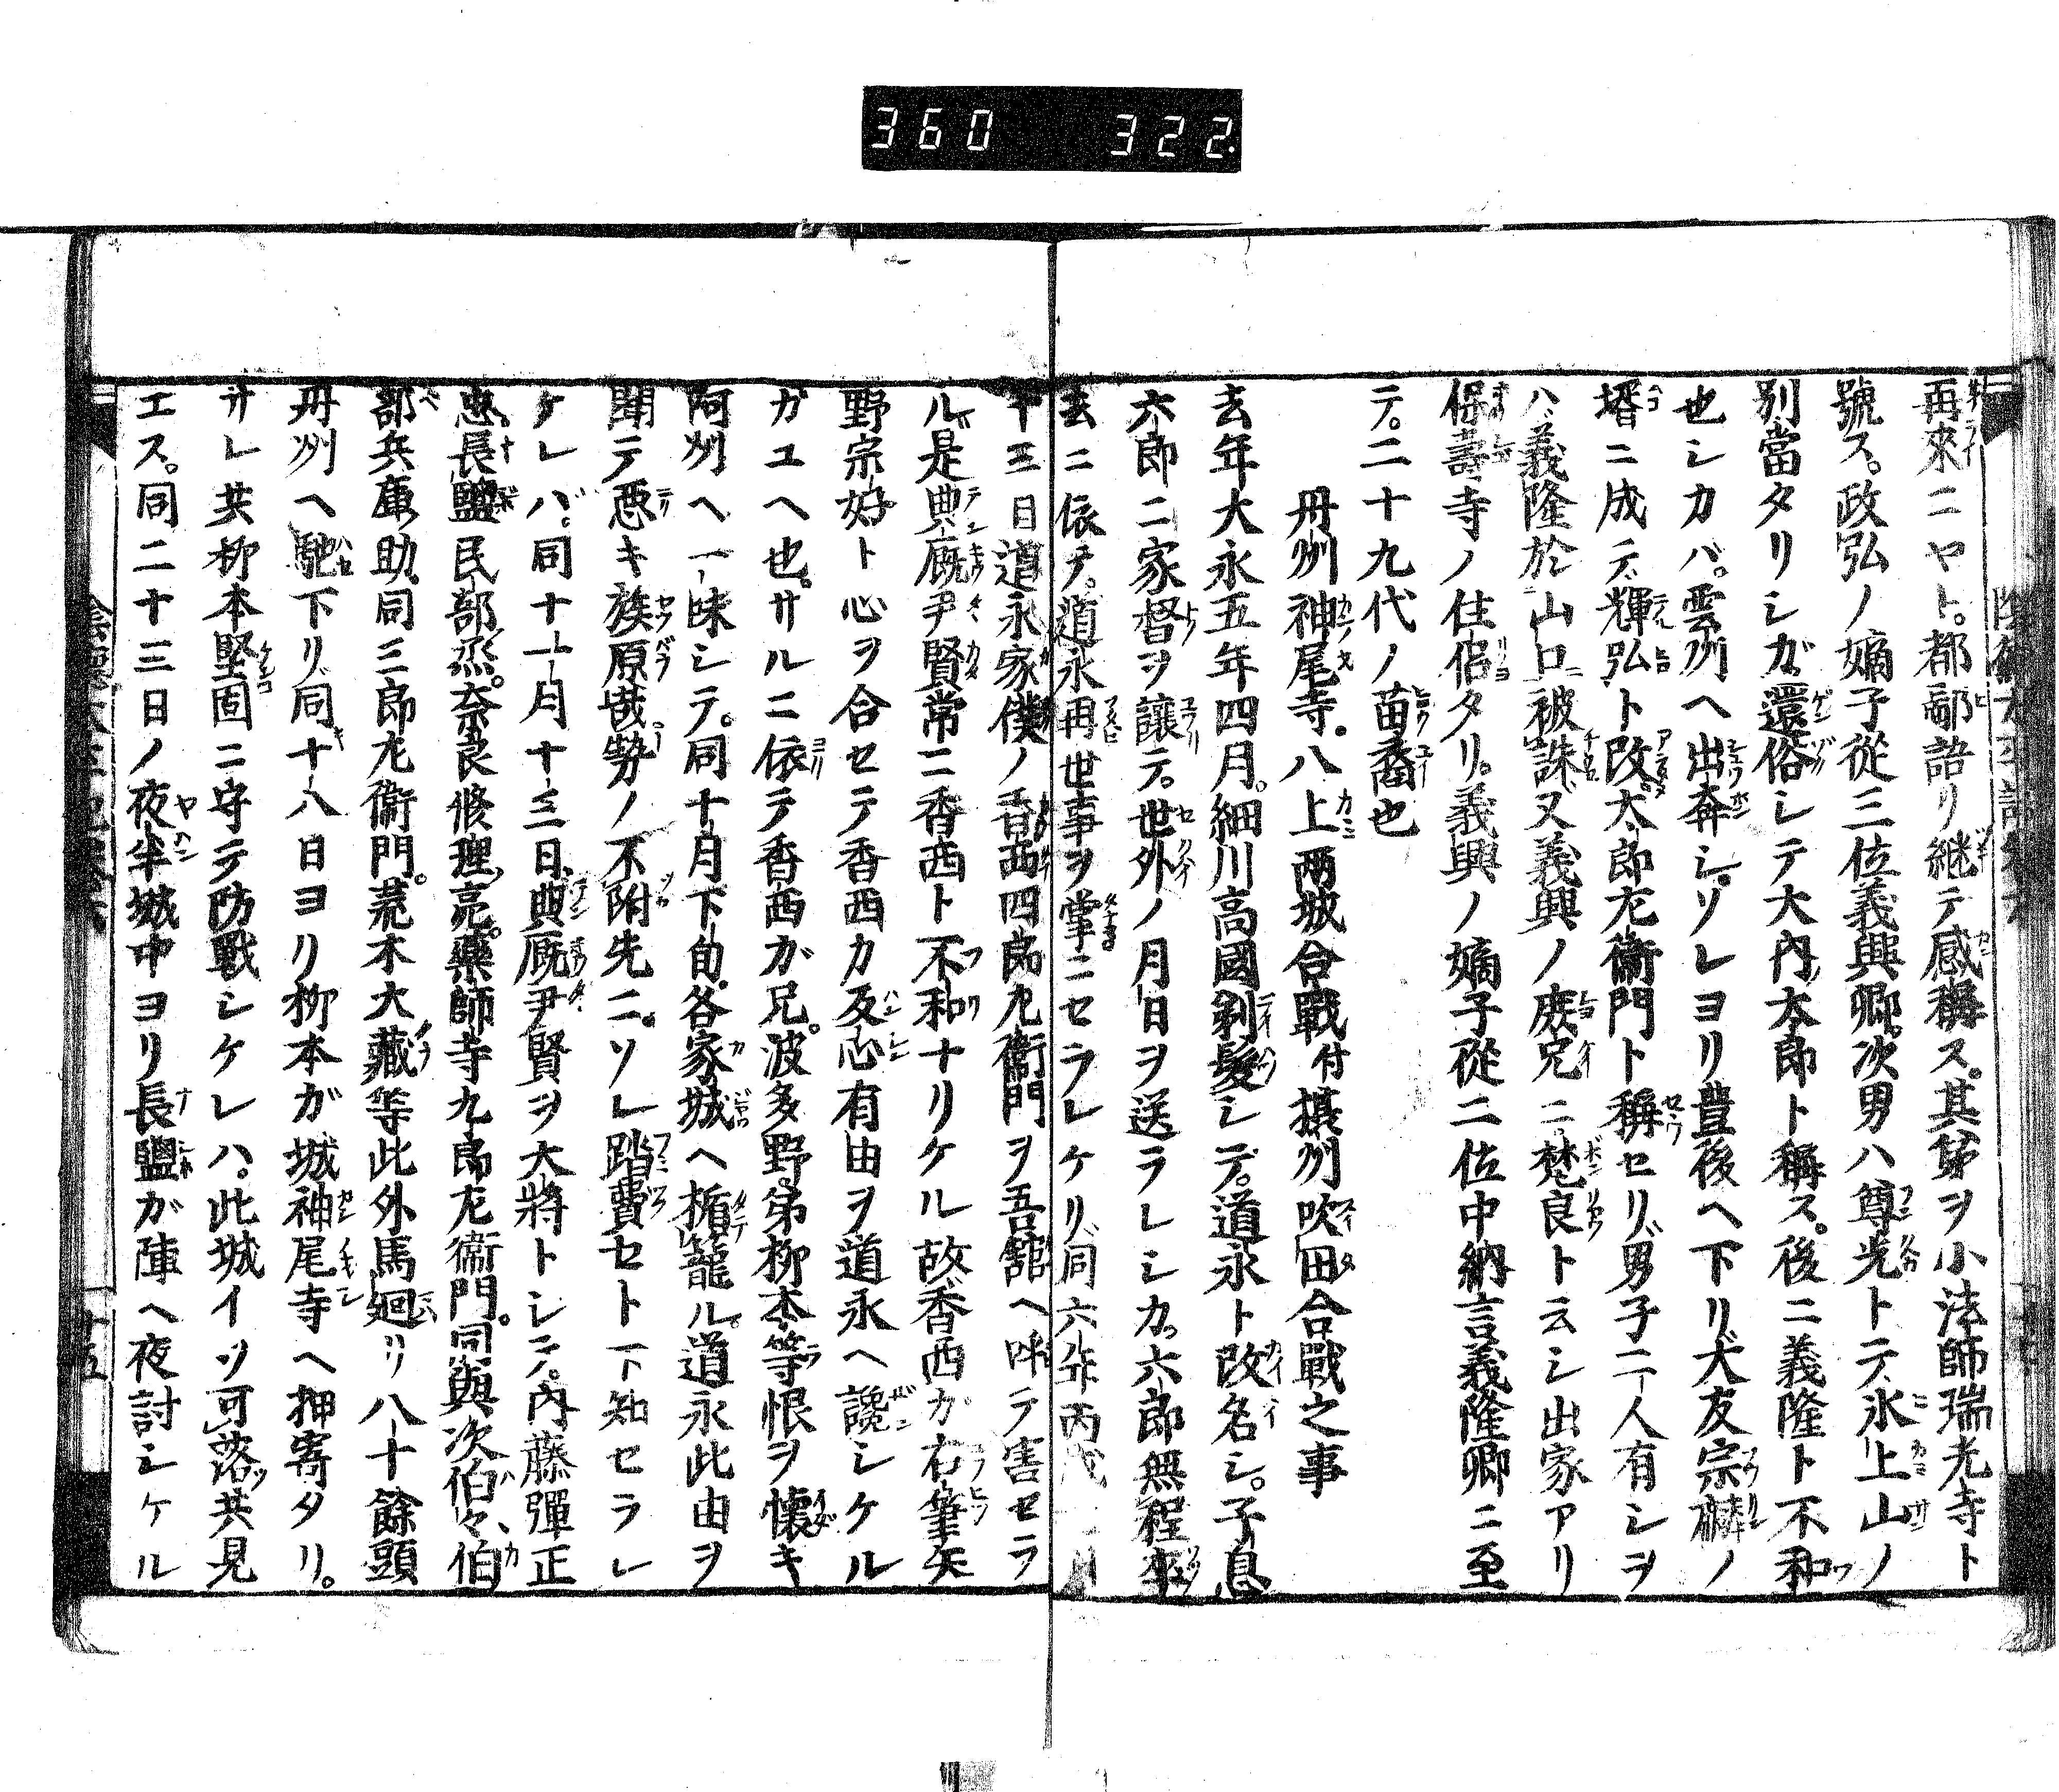 360 322
再來ニヤト。都鄙語リ継テ感稱ス。其弟ヲ小法師瑞光寺ト
號ス。政弘ノ嫡子從三位義興卿。次男ハ尊光トテ氷上山ノ
別當タリシガ還俗シテ大内太郎ト稱ス。後ニ義隆ト不和
也シカバ。雲州ヘ出奔シ。ソレヨリ豊後ヘ下リ大友宗麟ノ
壻ニ成テ輝弘ト改。太郎左衞門ト稱セリ男子二人有シヲ
ハ義隆於山口被誅又義興ノ庶兄ニ梵良ト云シ出家アリ
保壽寺ノ住侶タリ。義興ノ嫡子從二位中納言義隆卿ニ至
テ。二十九代ノ苗裔也
丹州神尾寺。八上兩城合戰付攝州吹田合戰之事
去年大永五年四月。細川高國剃髮シテ。道永ト改名シ。子息
六郎ニ家督ヲ讓テ。世外ノ月日ヲ送ラレシカ。六郎無程卒
去ニ依テ。道永再世事ヲ掌ニセラレケリ同六年丙戌 月
十三日道永家僕ノ香西四郎左衞門ヲ吾舘ヘ呼テ害セラ
ル是典廐尹賢常ニ香西ト不和ナリケル故香西ガ右筆矢
野宗好ト心ヲ合セテ香西カ反心有由ヲ道永ヘ讒シケル
ガユヘ也。サルニ依テ香西ガ兄。波多野。弟柳本等恨ヲ懷キ
阿州ヘ一味シテ。同十月下旬。各家城ヘ楯籠ル。道永此由ヲ
聞テ惡キ族原哉勢ノ不附先ニ。ソレ踏費セト下知セラレ
ケレバ。同十一月十三日。典廐尹賢ヲ大將トシテ。内藤彈正
忠。長鹽民部烝。奈良修理亮。藥師寺九郎左衞門。同與次伯々伯
部兵庫助。同三郎左衞門。荒木大藏等此外馬廻リ八十餘頭
丹州ヘ馳下リ同十八日ヨリ柳本ガ城神尾寺ヘ押寄タリ。
サレ共柳本堅固ニ守テ防戰シケレハ。此城イツ可落共見
エス。同二十三日ノ夜半城中ヨリ長鹽ガ陣ヘ夜討シケル